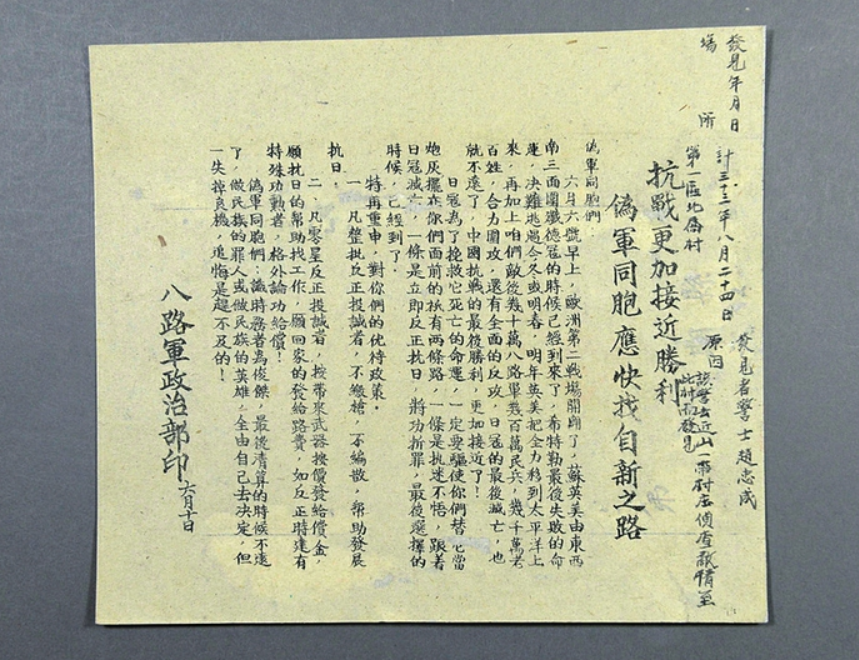 發見年月日 計三十三年八月二十四日 發見者警士趙志成
場所 第一區北為村 原因 該警去近山一帶討座偵查敵情至
此村而發見
抗戰更加接近勝利
偽軍同胞應快找自新之路
偽軍同胞們：
六月六號早上，歐洲第二戰場開闢了，蘇英美由東西
南三面圍殲德寇的時候已經到來了，希特勒最後失敗的命
運，決難逃過今冬或明春，明年英美把全力移到太平洋上
來，再加上咱們敵後幾十萬八路軍幾百萬民兵，幾千萬老
百姓，合力圍攻，還有全面的反攻，日寇的最後滅亡，也
就不遠了，中國抗戰的最後勝利，更加接近了！
日寇為了挽救它死亡的命運，一定要驅使你們替它當
炮灰擺在你們面前的祇有兩條路，一條是执迷不悟，跟着
日寇滅亡，一條是立即反正抗日，將功折罪，最後選擇的
時候，已經到了．
特再重申，對你們的优待政策．
一、凡整批反正投誠者，不繳槍，不編散，帮助發展
抗日．
二、凡零星反正投誠者，携带來武器按價發給償金，
願抗日的帮助找工作，願回家的發給路費，如反正時建有
特殊功勳者，格外論功給償！
偽軍同胞們：識時務者為俊傑，最後清算的時候不遠
了，做民族的罪人或做民族的英雄，全由自己去决定，但
一失掉良機，追悔是趕不及的！
八路軍政治部印 六月十日